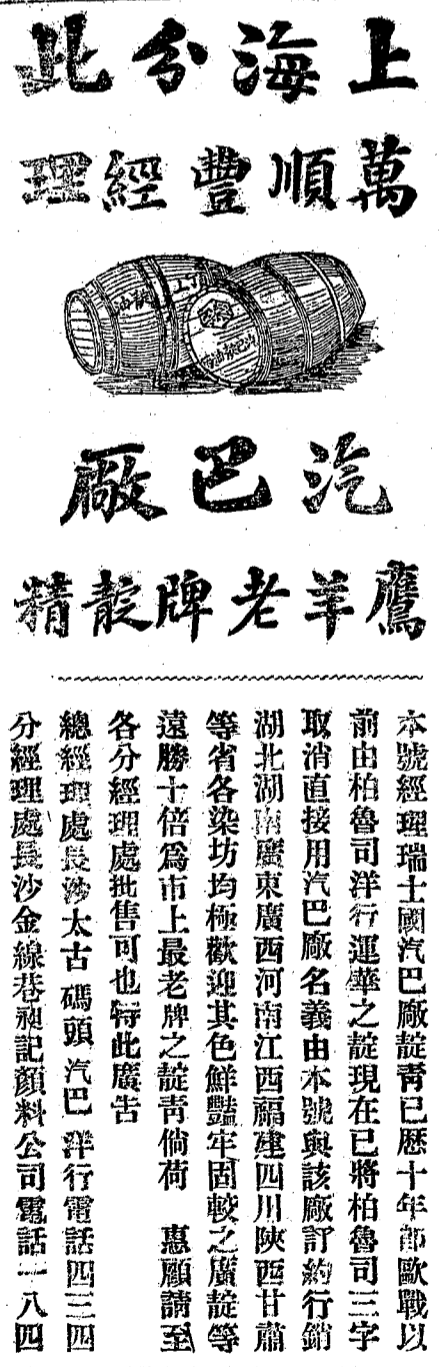 上海分此
萬順豐經理
汽巴廠
鷹羊老牌靛精
本號經理瑞士國汽巴廠靛靑已歷十年卽歐戰以
前由柏魯司洋行運華之靛現在已將柏魯司三字
取消直接用汽巴廠名義由本號與該廠訂約行銷
湖北湖南廣東廣西河南江西福建四川陝西甘肅
等省各染坊均極歡迎其色鮮豔牢固較之廣靛等
遠勝十倍爲市上最老牌之靛靑倘荷 惠顧請至
各分經理處批售可也特此廣告
總經理處長沙太古碼頭 汽巴 洋行電話四三四
分經理處長沙金線巷昶記顏料公司電話一八四